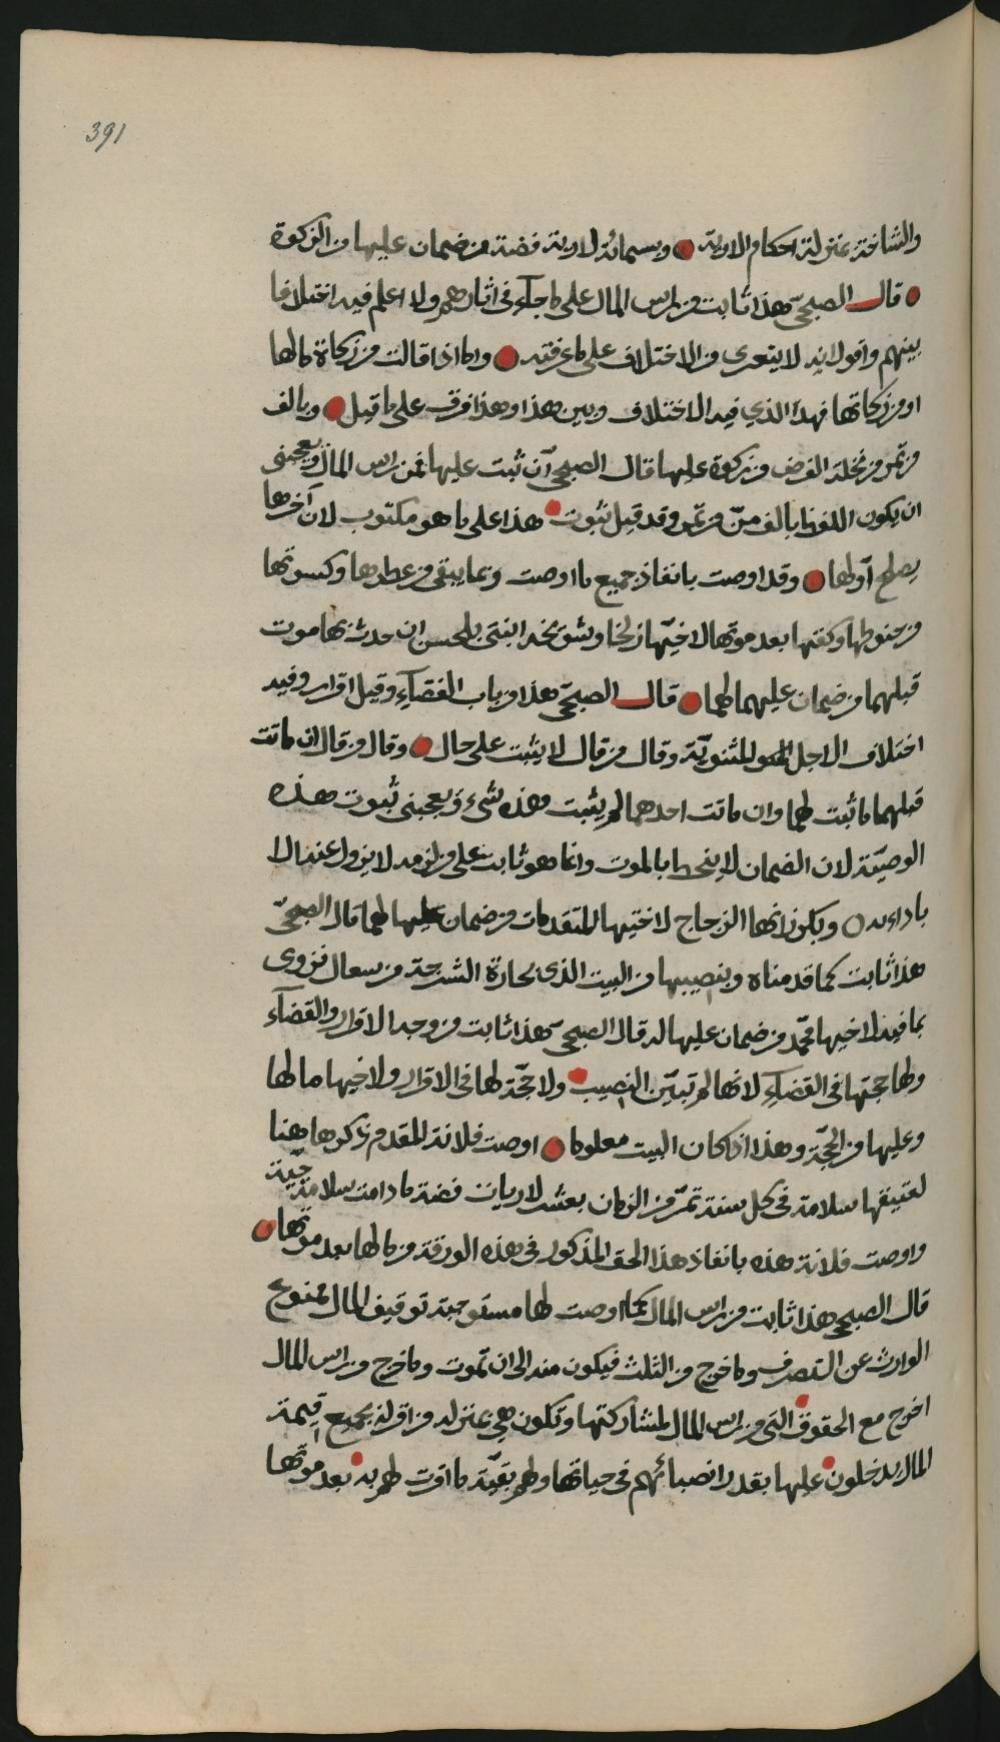 391
والشاخة بمنزلة احكام الاودية وبسمائة لارية فضة من ضمان عليها من الزكوة
قال الصبحي هذا ثابت من راس المال على ما جآء فى اثارهم ولا اعلم فيه اختلافا
بينهم واقول انه لا يتعرى من الاختلاف على ما عرفته واما اذا قالت من زكاة مالها
او من زكاتها فهذا الذي فيه الاختلاف وبين هذا وهذا فرق على ما قيل وبالف
من تمر من نخلة الفرض من زكوة عليها قال الصبحى ان ثبت عليها فمن راس المال ويعجبنى
ان يكون اللفظ بالف منّ من تمر وقد قيل بثبوت هذا على ما هو مكتوب لان آخرها
يصلح اولها وقد اوصت بانفاذ جميع ما اوصت وبما يبقى من عطرها وكسوتها
من حنوطها وكفنها بعد موتها لاختيها زلخا و بنى بلحسن ان حدث بها موت
قبلهما من ضمان عليهما لهما قال الصبحى هذا من باب القضآء وقيل اقرار وفيه
اختلاف لاجل المثنوية وقال من قال لا يثبت على حال وقال من قال ان ماتت
قبلهما ثبت لهما وان ماتت احدهما لم يثبت وهذه شىء ويعجبنى ثبوت هذه
الوصيّة لان الضمان لا ينحط بالموت وانما هو ثابت على من لزمه لا يزول عنه الا
باداءه وبكل انها الزجاج لاختيها المتقدمات من ضمان عليها لهما قال الصبحىّ
هذا ثابت كما قدمناه وبنصيبها من البيت الذى بحارة الشرجة من سعال نزوى
بما فيه لاخيها محمّد من ضمان عليها له قال الصبحى هذا ثابت من وجه الاقرار والقضآء
ولها حجتها فى القضآء لانها لم تبيّن النصيب ولا حجّة لها فى الاقرار ولاخيها ما لها
وعليها من الحجّة وهذا اذا كان البيت معلوما اوصت فلانة المقدم ذكرها هنا
لعتيقها سلامة فى كل سنة تمرّ من الزمان بعشر لاريات فضة ما دامت سلامة حيّة
واوصت فلانة هذه بانفاذ هذا الحق المذكور فى هذه الورقة من مالها بعد موتها
قال الصبحى هذا ثابت من راس المال كما اوصت لها مستوجبة توقيف المال ممنوع
الوارث عن التصرف وما خرج من الثلث فيكون منه الى ان تموت وما خرج من راس المال
اخرج مع الحقوق التى من راس المال لمشاركتها وتكون هى بمنزلة من اقر له بجميع قيمة
المال يدخلون عليها بقدر انصبائهم فى حياتها ولهم بقيّة ما اقرت لهم به بعد موتها